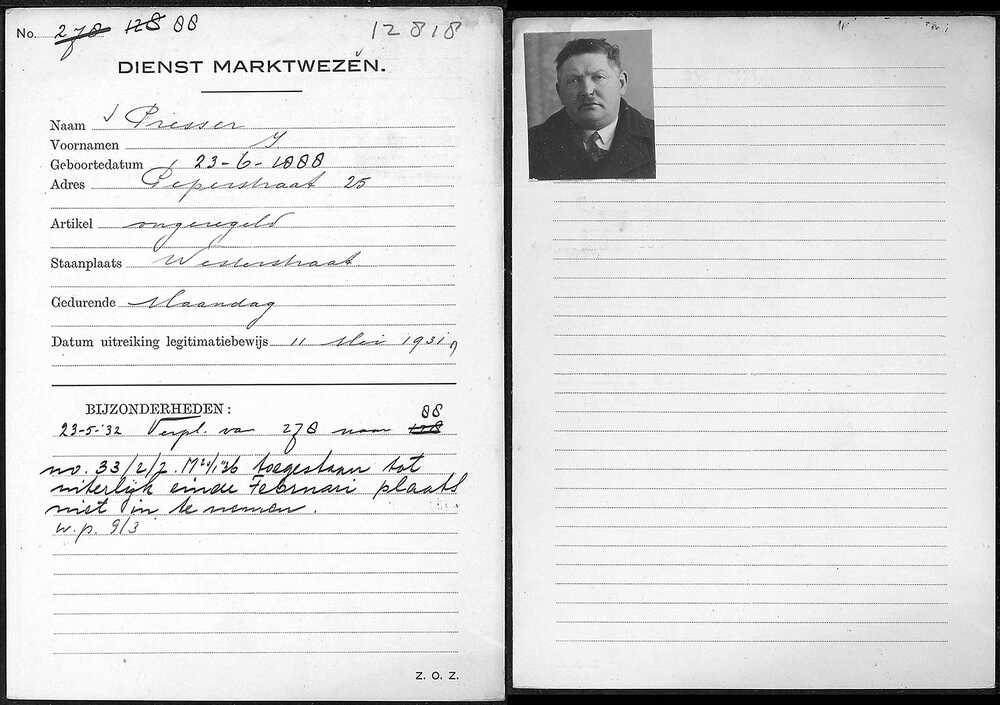 No. 278 128 88
12818
DIENST MARKTWEZEN.
Naam Presser
Voornamen J
Geboortedatum 23-6-1888
Adres Peperstraat 25
Artikel ongeregeld
Staanplaats Westerstraat
Gedurende Maandag
Datum uitreiking legitimatiebewijs 11 Mei 1931
BIJZONDERHEDEN:
88
23-5-'32 Verpl. van 278 naar 128
no. 33/2/2. M 20/1 '36 toegestaan tot
uiterlijk einde Februari plaats
niet in te nemen.
w.p. 9/3
Z. O. Z.